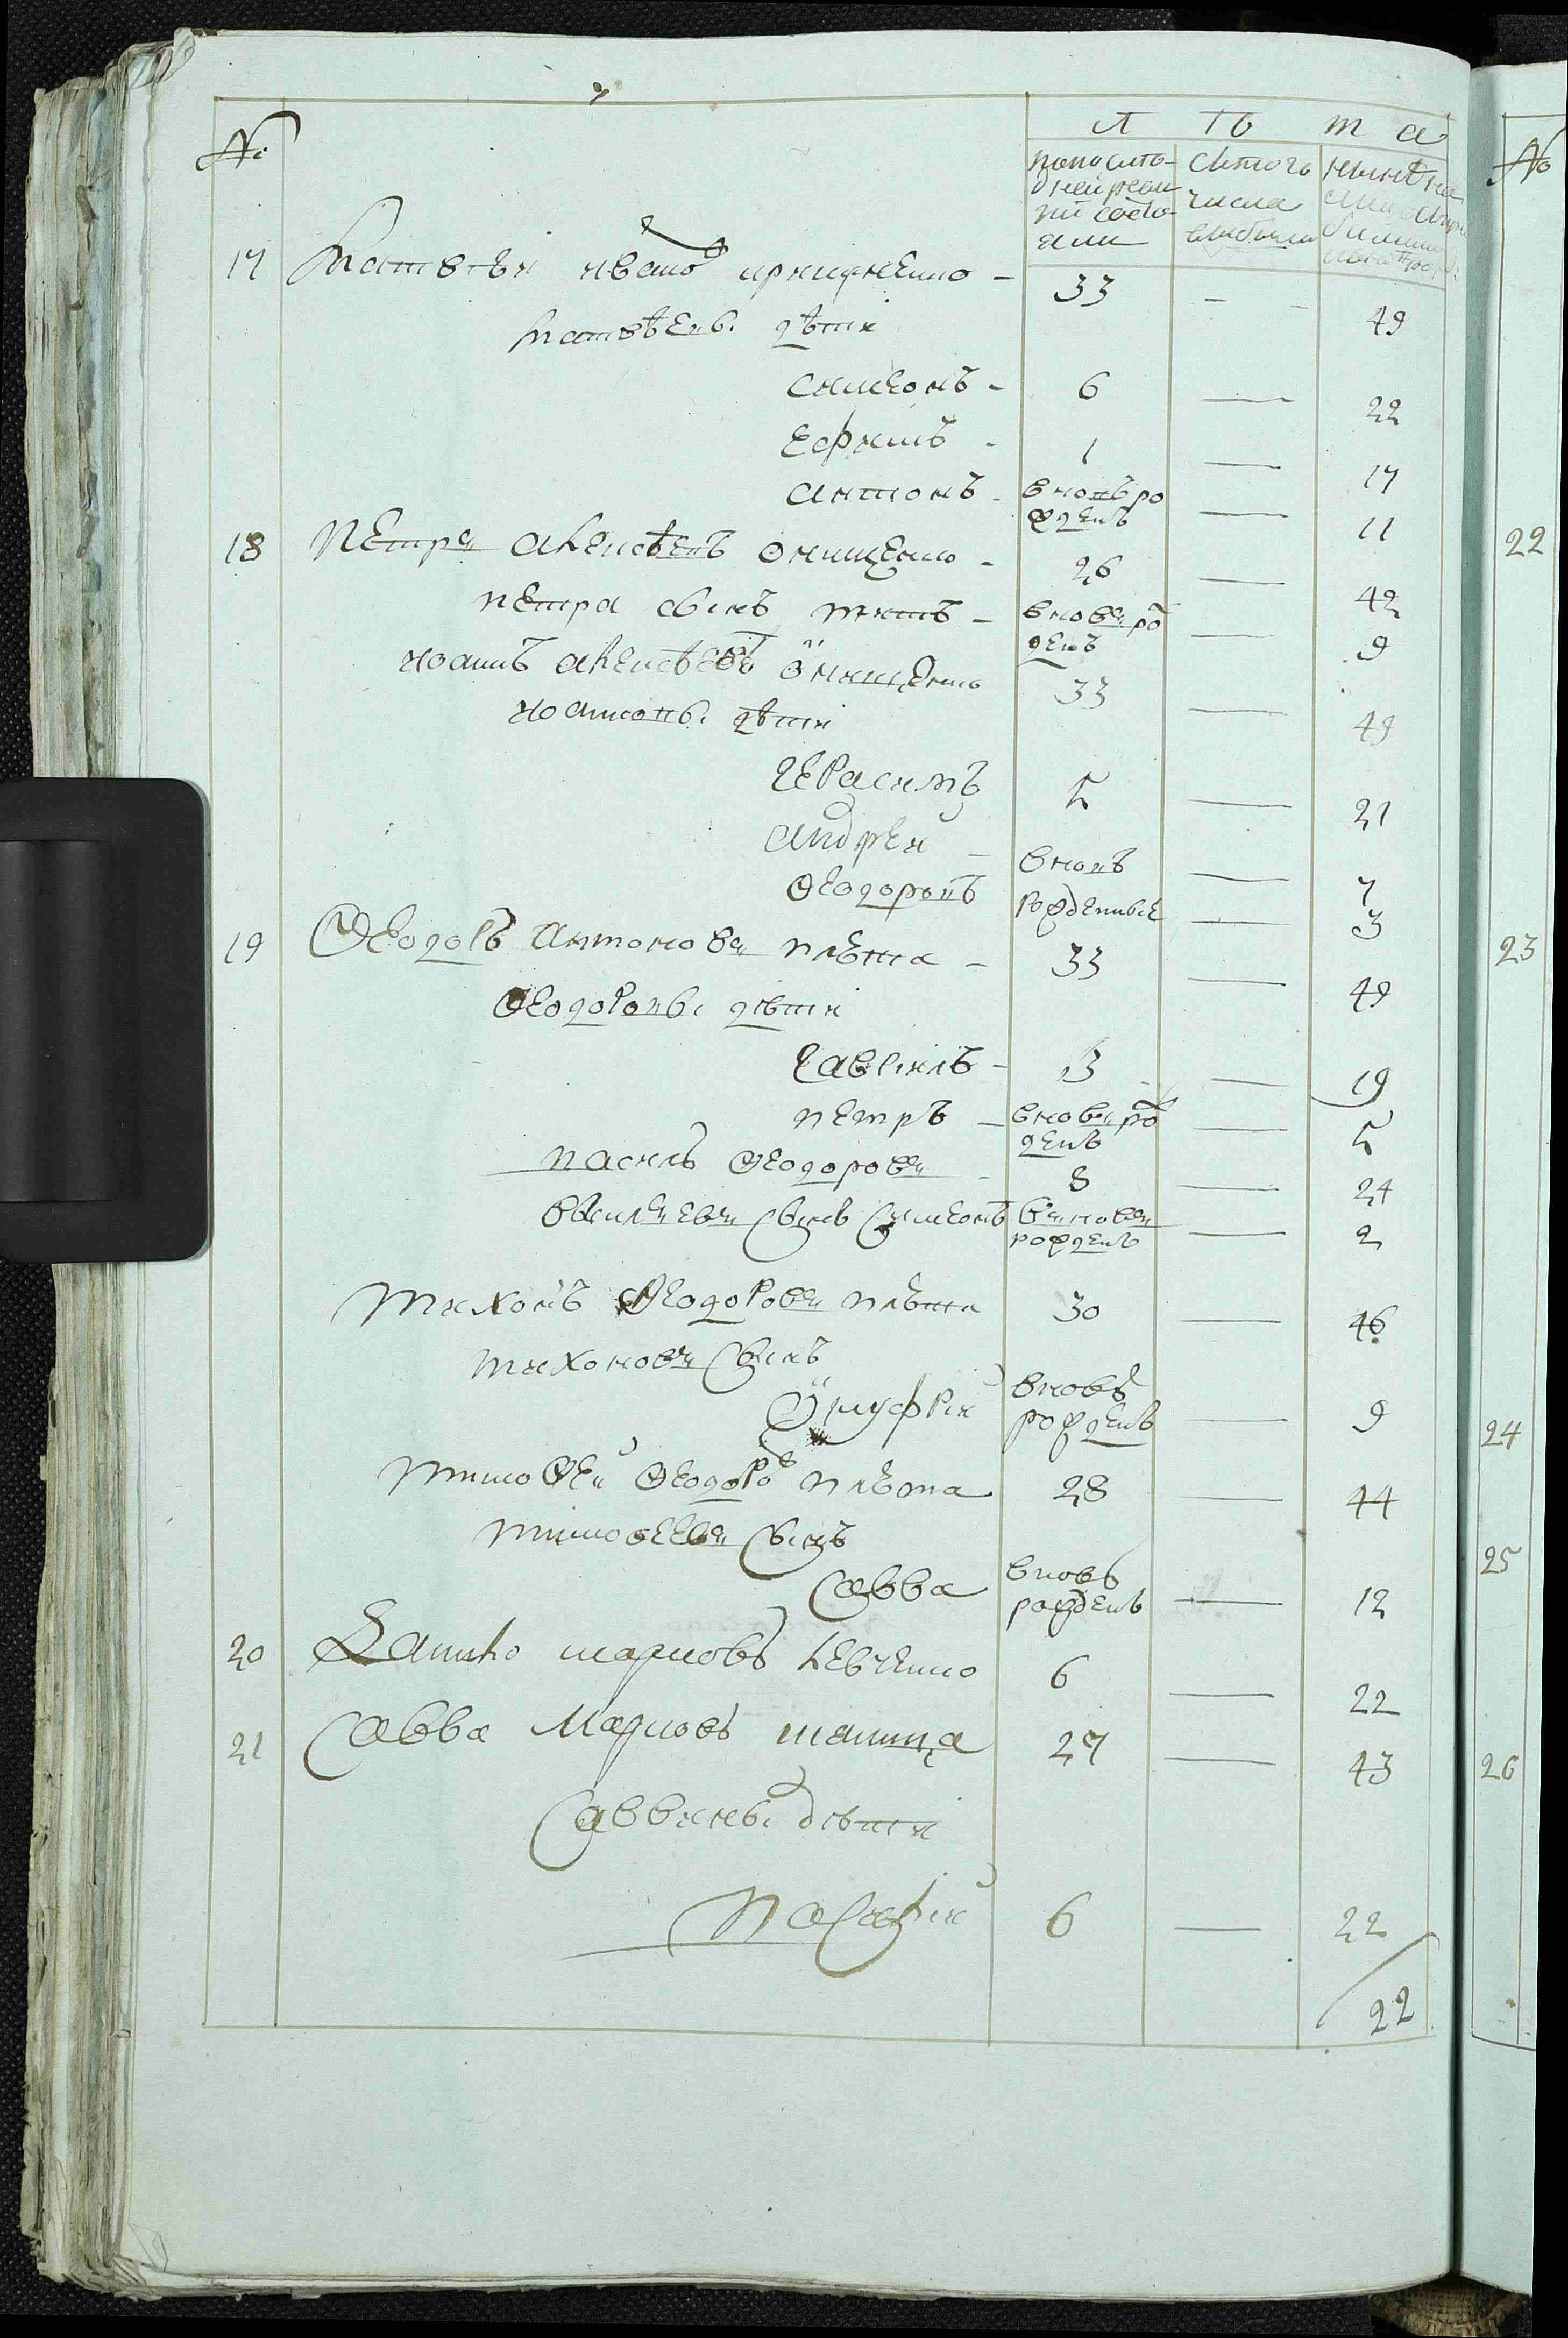 № Л Ѣ т а
попослѣднейревизіи состояли
съ того числа выбыли
нынѣ на лицо
17 Матвѣй Ивановъ – 33 – – 49
Матвѣевы дѣти
Симеонъ – 6 — 22
Ефимъ – 1 — 17
Антонъ – вновь рожденъ — 11
18 Петръ Алексѣевъ Онищенко – 26 — 42
Петра сынъ Титъ – вновь рожденъ — 9
Иоаннъ Алексѣевъ Онищенко 33 — 49
Иоанновы дѣти
Герасимъ 5 — 21
Андрей – вновь — 7
Ѳеодоръ рожденные — 3
19 Ѳеодоръ Антоновъ Плѣша – 33 — 49
Ѳеодоровы дѣти
Гавріилъ – 3 — 19
Петръ – вновь рожденъ — 5
Ѳеодоровъ – 8 — 24
сынъ Симеонъ вновь рожденъ — 2
Тихонъ Ѳеодоровъ Плѣша 30 — 46
Тихоновъ сынъ
Онуфрій вновь рожденъ — 9
Тимоѳей Ѳеодоровъ Плѣша 28 — 44
Тимоѳеевъ сынъ
Савва вновь рожденъ — 12
20 Марковъ Левченко 6 — 22
21 Савва Марковъ 27 — 43
Саввины дѣти
6 — 22
22
№
22
23
24
25
26